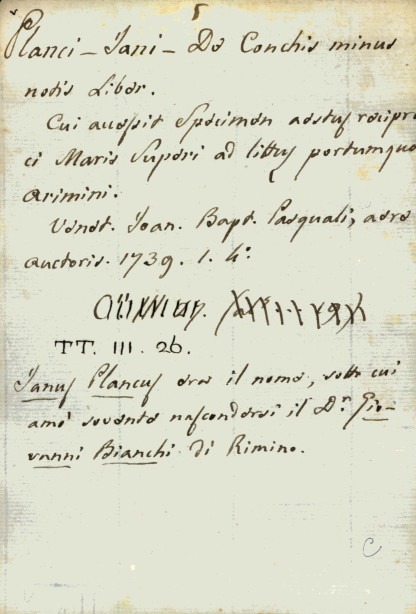 Planci - Jani - De Conchis minus
notis Liber.
Cui accessit Specimen aestus recipro
ci Maris Superi ad littus portumque
Arimini.
Venet. Joan. Bapt. Pasquali, aere
auctoris. 1739. 1. 4°.
TT. III. 26.
Janus Plancus era il nome, sotto cui
amò sovente nascondersi il Dr. Gio-
vanni Bianchi di Rimino.